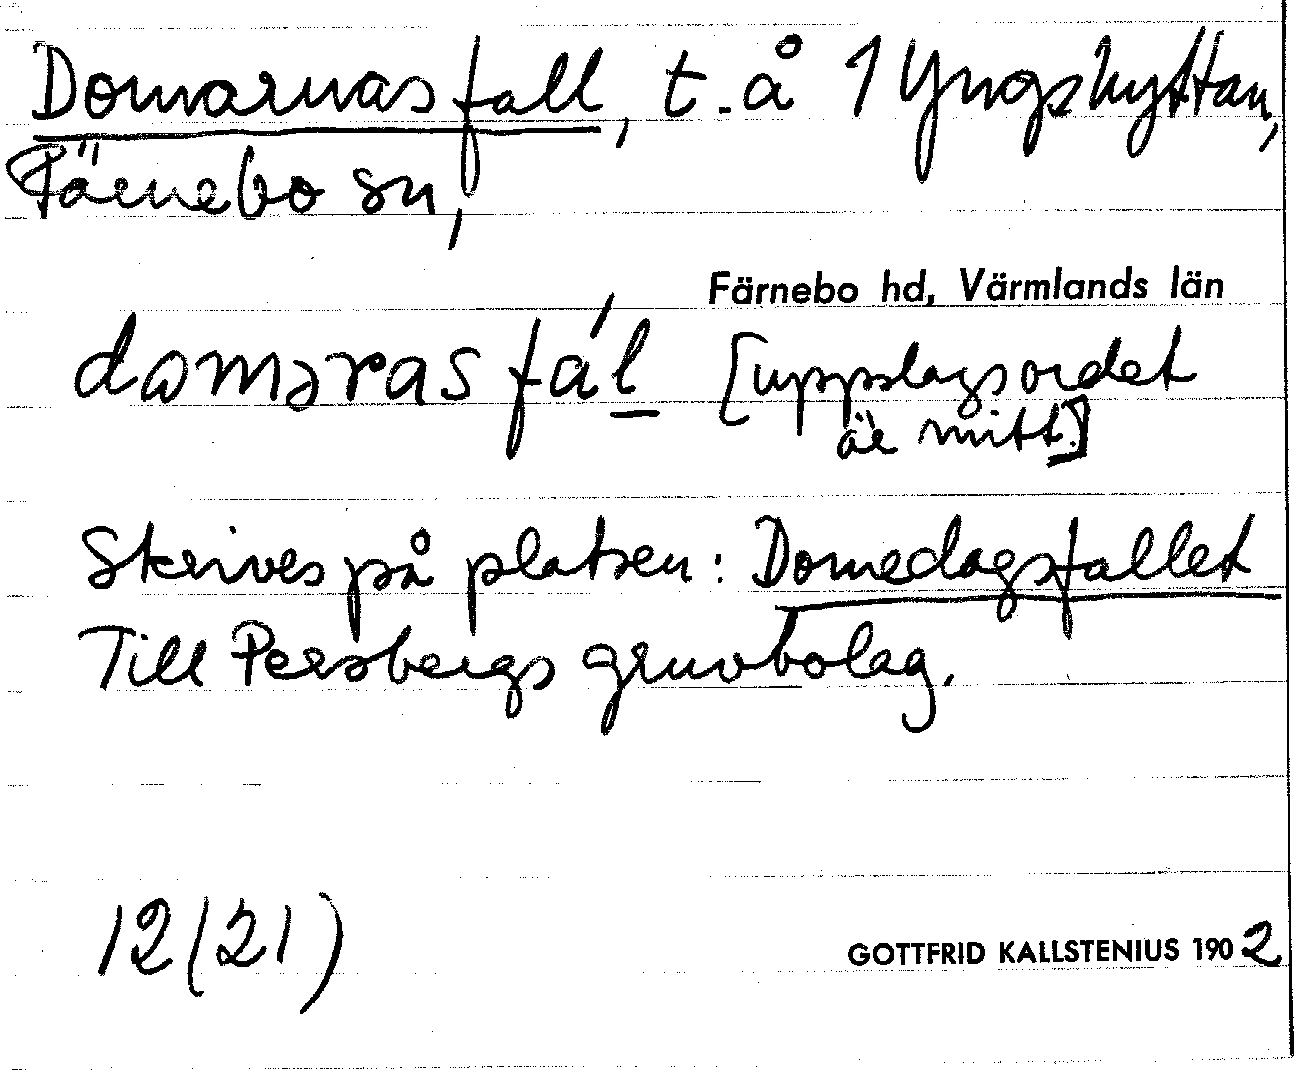 Domarnas fall, t. å 1 Yngshyttan,
Färnebo sn,
Färnebo hd, Värmlands län
damǝras fál [uppslagsordet
är mitt.]
Skrives på platsen: Domedagsfallet
Till Persbergs gruvbolag.
12(21)
GOTTFRID KALLSTENIUS 1902